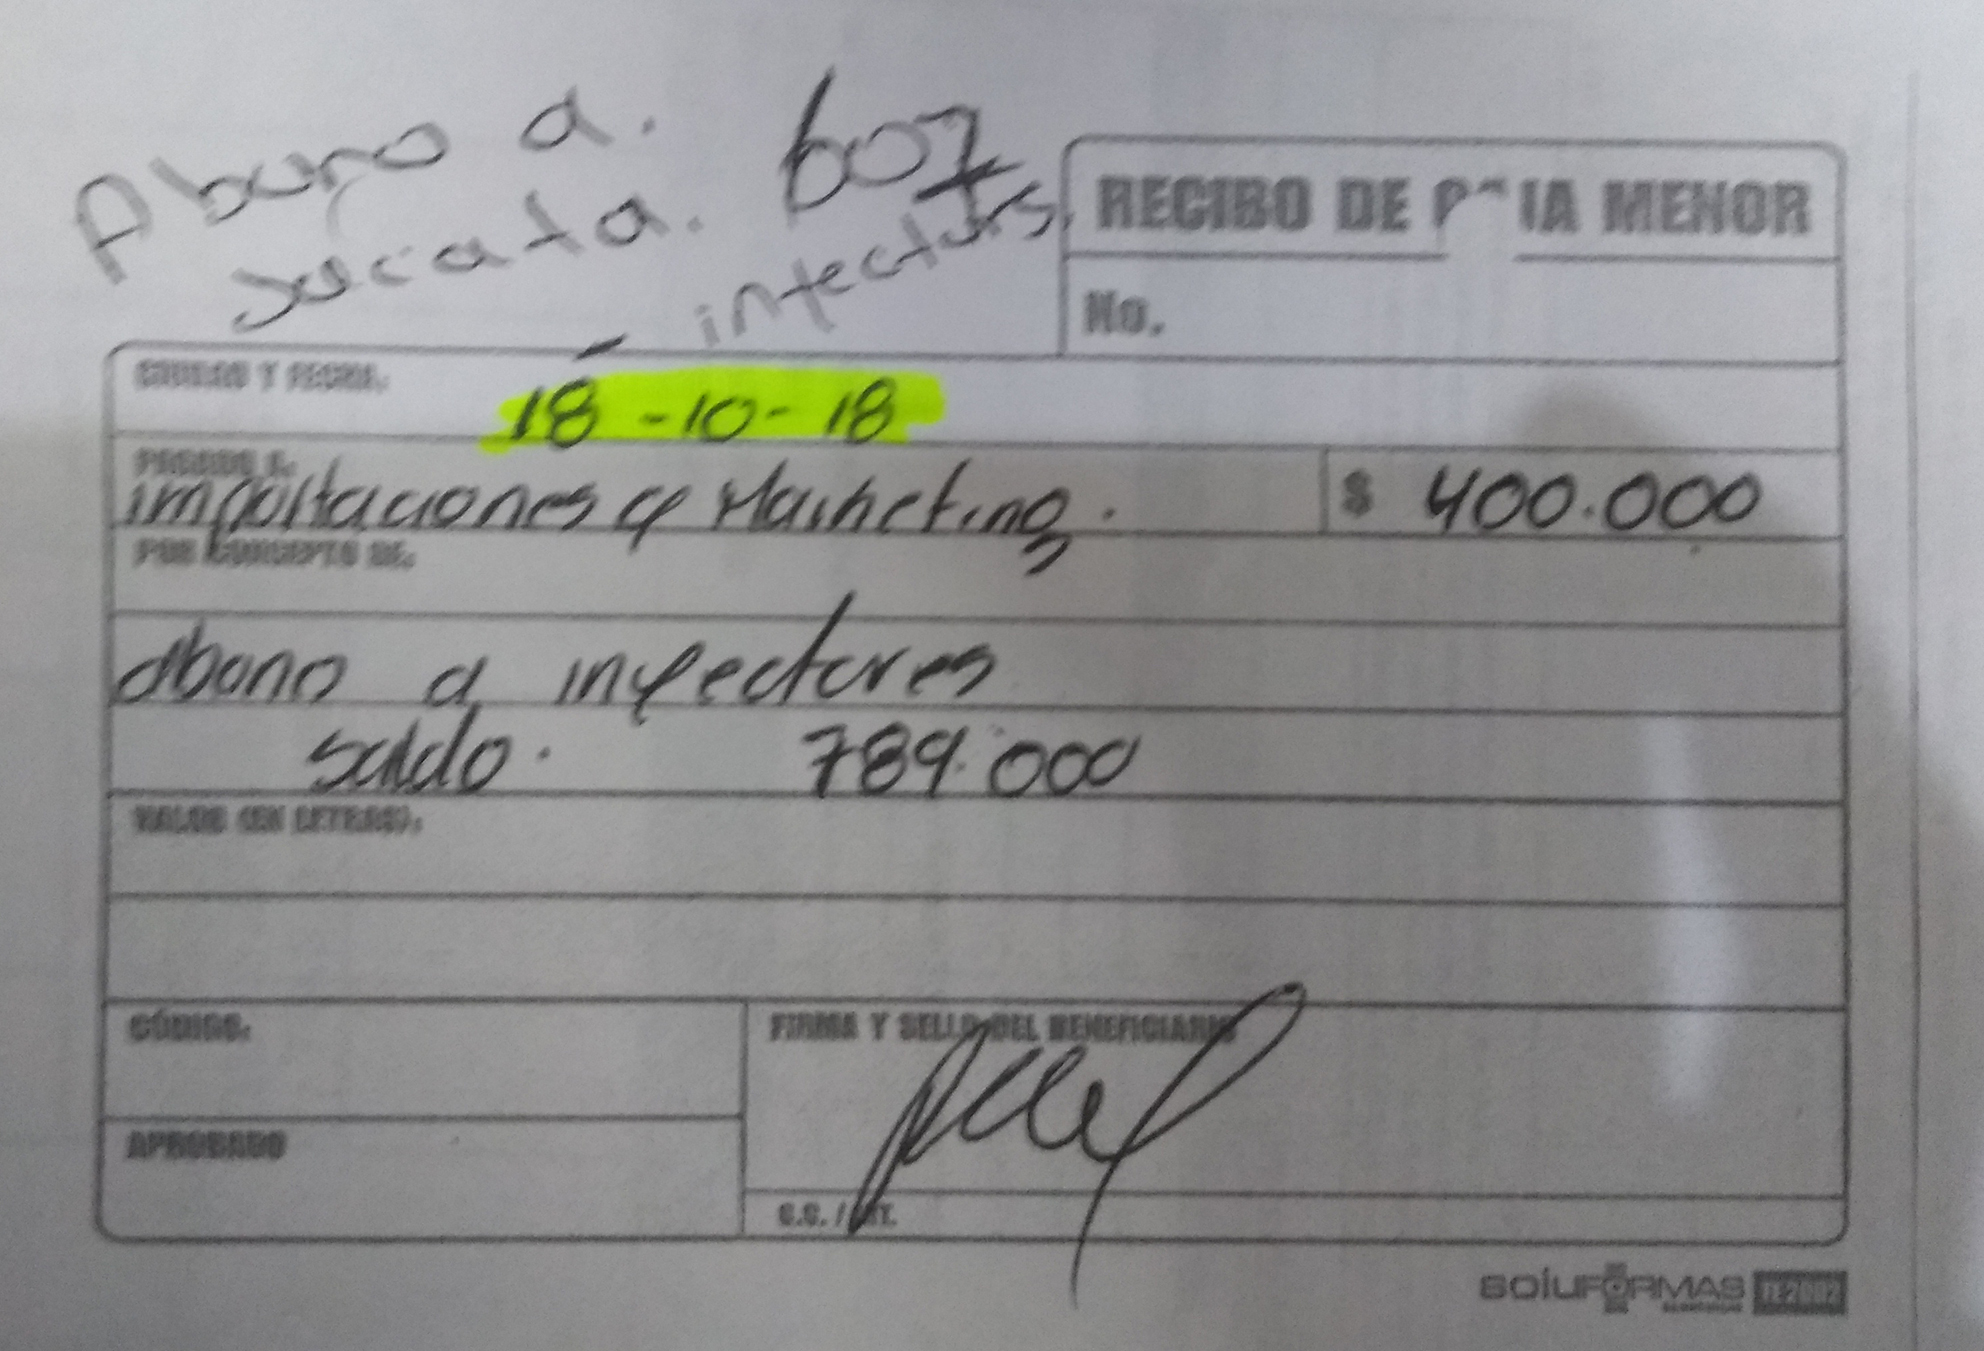 Abono a. 607
infectors.
RECIBO DE MENOR
No.
CIUDAD Y FECHA:
18-10-18
PAGADO A:
importaciones y Marketing.
$ 400.000
POR CONCEPTO DE:
abono a inyectores
saldo. 789.000
VALOR (EN LETRAS):
CÓDIGO:
FIRMA Y SELLO DEL BENEFICIARIO
APROBADO
C.C. / NIT.
SOLUFORMAS